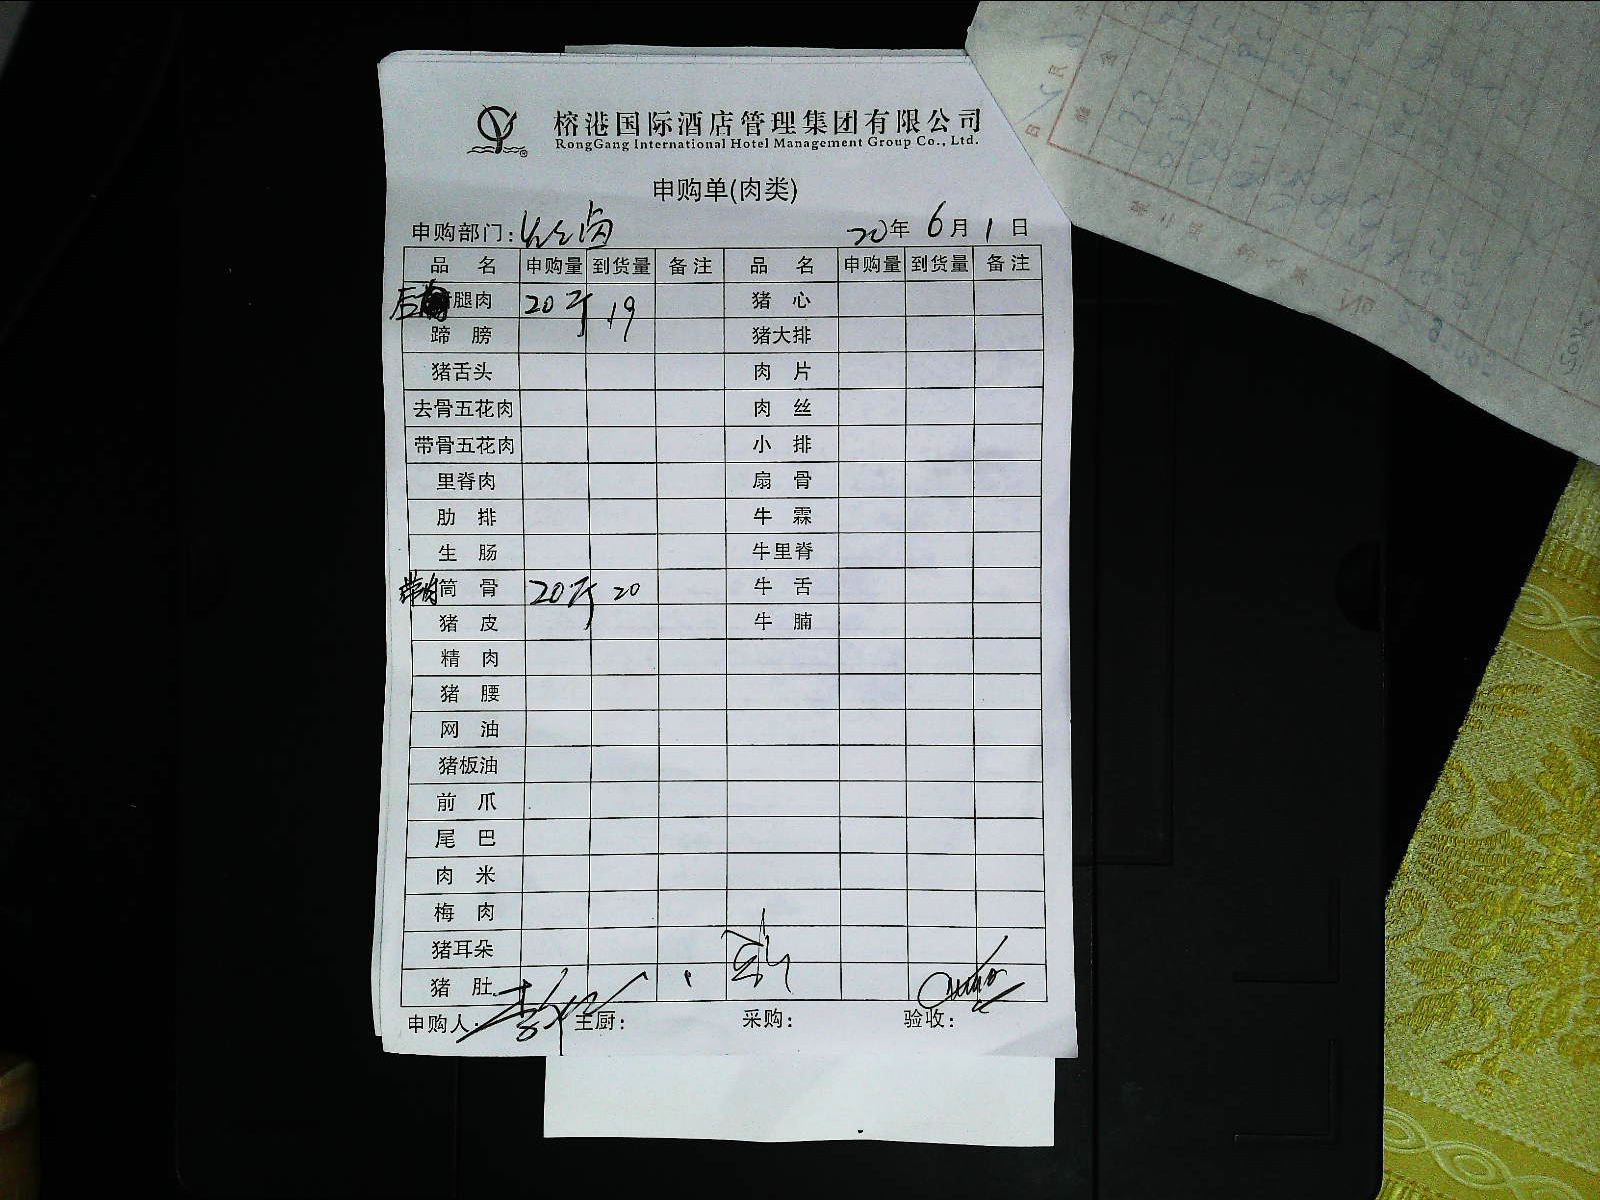 榕港国际酒店管理集团有限公司
RongGang International Hotel Management Group Co., Ltd.
申购单(肉类)
申购部门: 卤 20年 6月 1日
品名 申购量 到货量 备注 品名 申购量 到货量 备注
后腿肉 20斤 19 猪心
蹄膀 猪大排
猪舌头 肉片
去骨五花肉 肉丝
带骨五花肉 小排
里脊肉 扇骨
肋排 牛霖
生肠 牛里脊
带肉筒骨 20斤 20 牛舌
猪皮 牛腩
精肉
猪腰
网油
猪板油
前爪
尾巴
肉米
梅肉
猪耳朵
猪肚
申购人: 主厨: 采购: 验收: